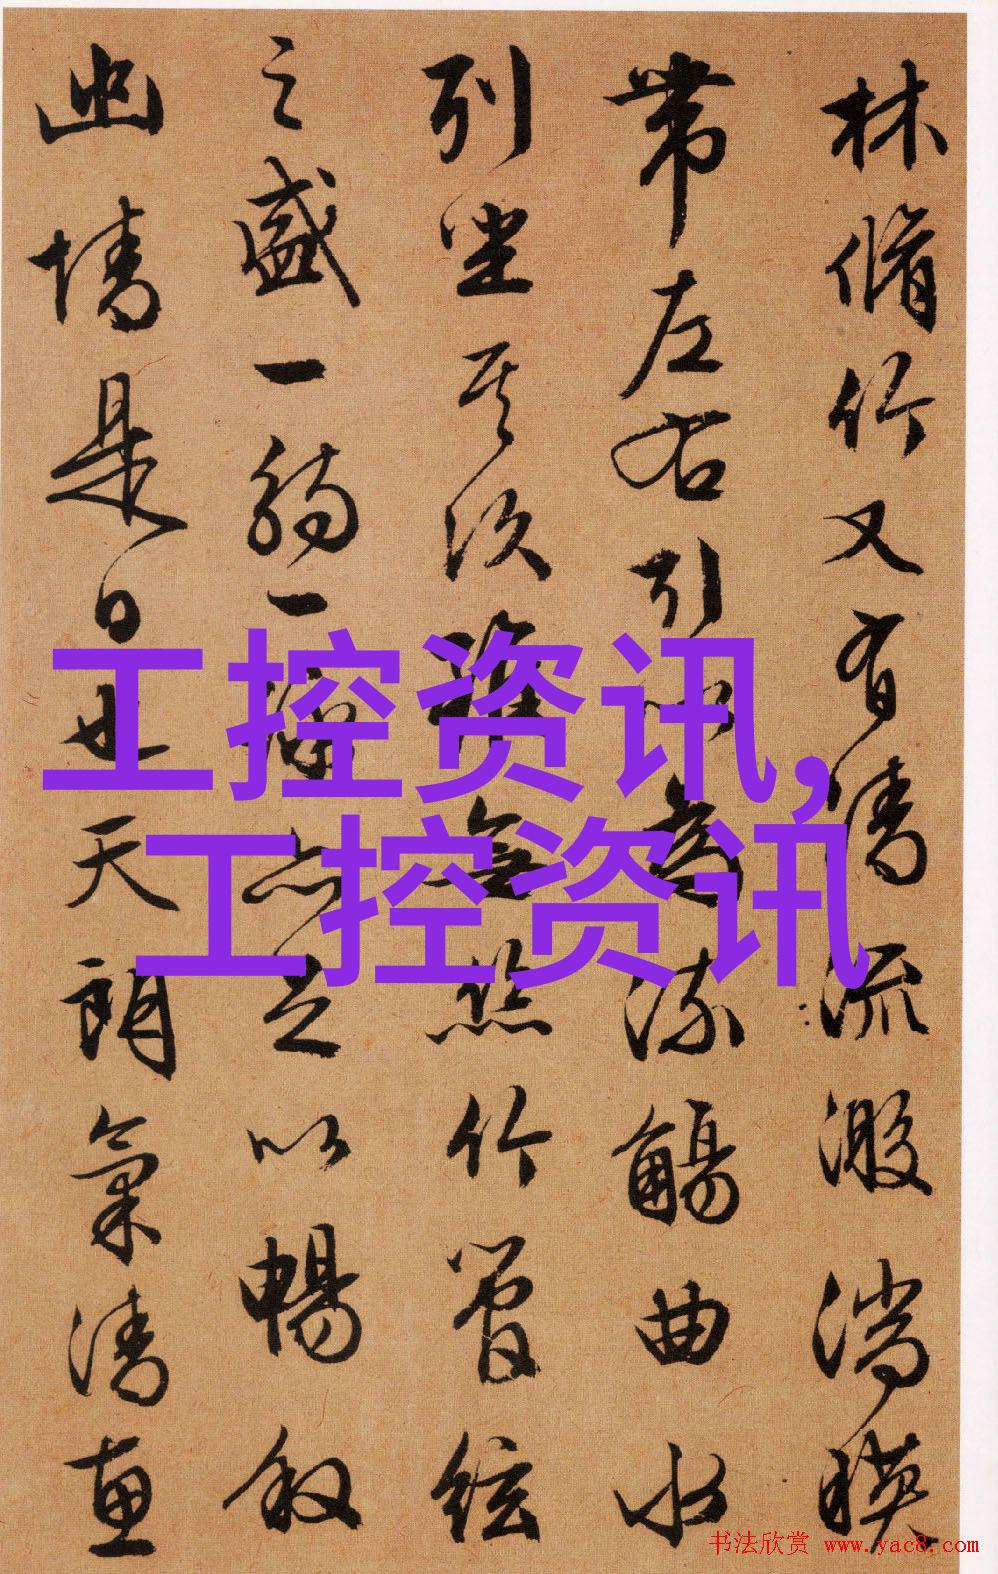 林脩竹又有清流激湍暎
帶左右引以為流觴曲水
列坐其次雖無絲竹管絃
之盛一觴一詠亦足以暢叙
幽情是日也天朗氣清惠
工控资讯,
工控资讯
书法欣赏 www.yac8.com